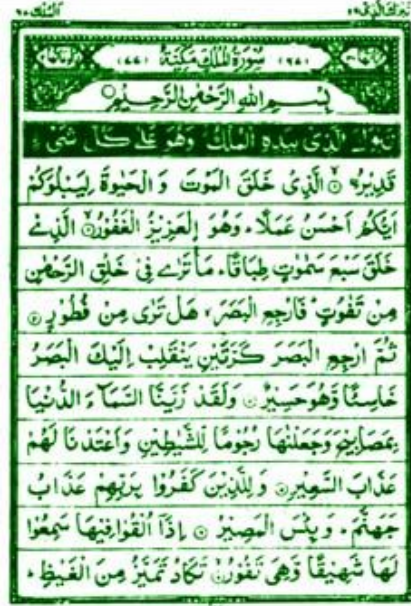 تبرك الذى ٢٩
الملك ٦٧
(٦٧) سُوْرَةُ الْمُلْكِ مَكِّيَّةٌ (٧٧)
بِسْمِ اللهِ الرَّحْمٰنِ الرَّحِيْمِ
تَبٰرَكَ الَّذِىْ بِيَدِهِ الْمُلْكُ وَهُوَ عَلٰى كُلِّ شَىْءٍ
قَدِيْرُ ۨ الَّذِىْ خَلَقَ الْمَوْتَ وَ الْحَيٰوةَ لِيَبْلُوَكُمْ
اَيُّكُمْ اَحْسَنُ عَمَلًا ؕ وَهُوَ الْعَزِيْزُ الْغَفُوْرُ الَّذِىْ
خَلَقَ سَبْعَ سَمٰوٰتٍ طِبَاقًا ؕ مَا تَرٰى فِىْ خَلْقِ الرَّحْمٰنِ
مِنْ تَفٰوُتٍ ؕ فَارْجِعِ الْبَصَرَ ۙ هَلْ تَرٰى مِنْ فُطُوْرٍ
ثُمَّ ارْجِعِ الْبَصَرَ كَرَّتَيْنِ يَنْقَلِبْ اِلَيْكَ الْبَصَرُ
خَاسِئًا وَّهُوَ حَسِيْرٌ وَلَقَدْ زَيَّنَّا السَّمَآءَ الدُّنْيَا
بِمَصَابِيْحَ وَجَعَلْنٰهَا رُجُوْمًا لِّلشَّيٰطِيْنِ وَاَعْتَدْنَا لَهُمْ
عَذَابَ السَّعِيْرِ وَ لِلَّذِيْنَ كَفَرُوْا بِرَبِّهِمْ عَذَابُ
جَهَنَّمَ ؕ وَ بِئْسَ الْمَصِيْرُ اِذَاۤ اُلْقُوْا فِيْهَا سَمِعُوْا
لَهَا شَهِيْقًا وَّهِىَ تَفُوْرُ تَكَادُ تَمَيَّزُ مِنَ الْغَيْظِ ؕ